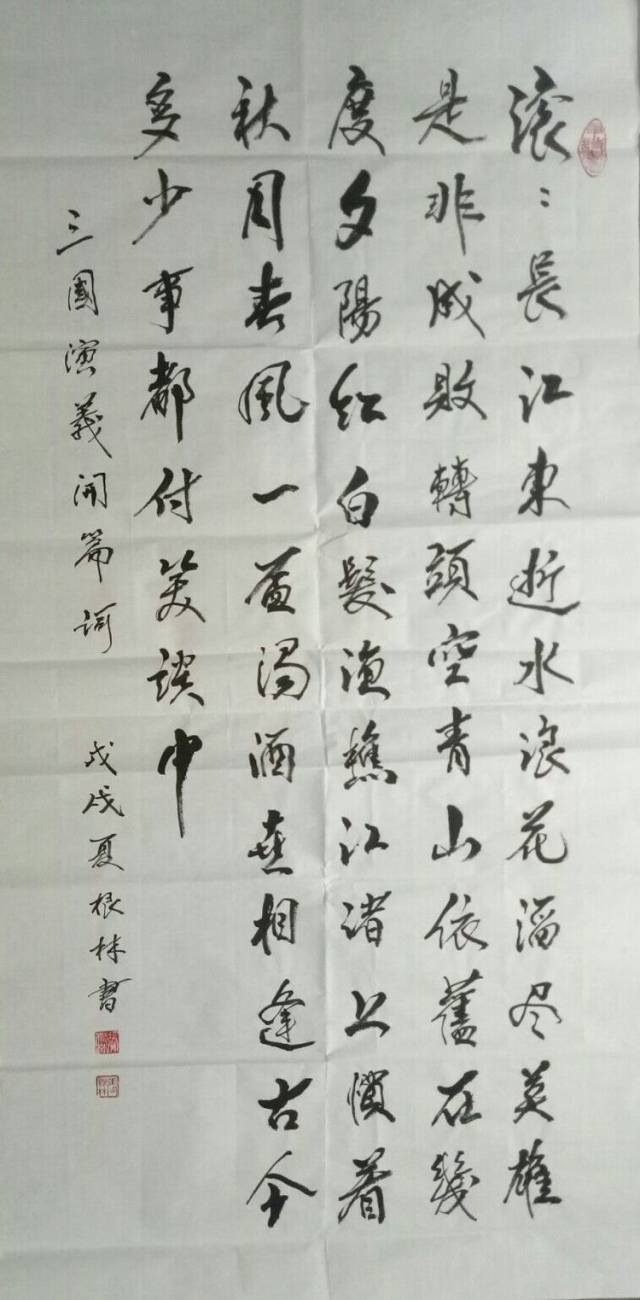 滚〻長江東逝水浪花淘尽英雄
是非成敗轉頭空青山依舊在幾
度夕陽紅白髮漁樵江渚上慣看
秋月春風一壺濁酒喜相逢古今
多少事都付笑談中
三國演義開篇詞
戊戌夏根林書